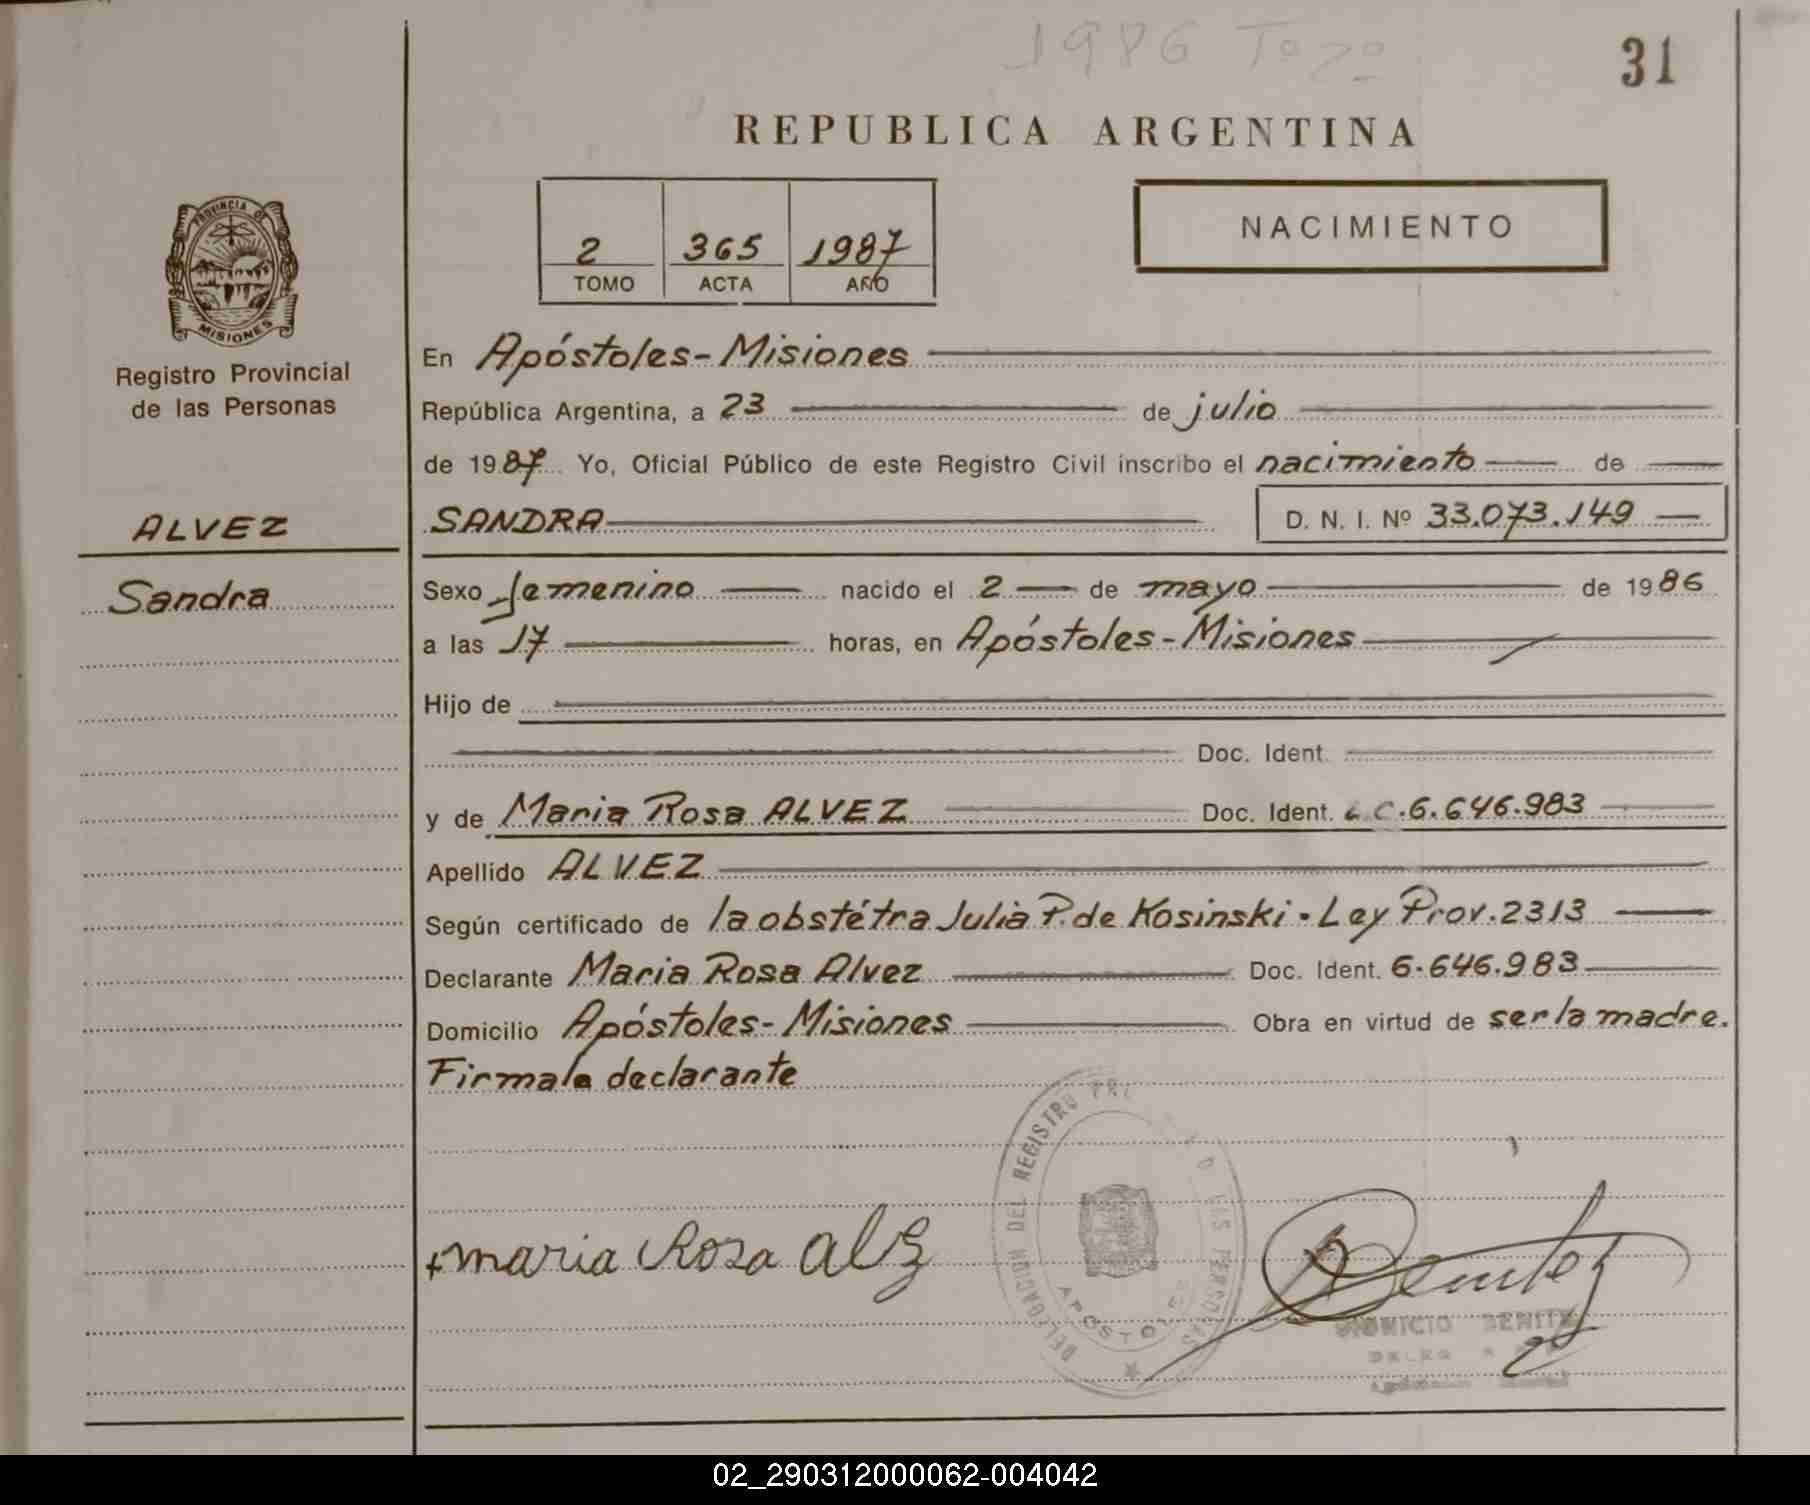 1986 Tº 2º
31
REPUBLICA ARGENTINA
2 365 1987
TOMO ACTA AÑO
NACIMIENTO
PROVINCIA DE
MISIONES
Registro Provincial
de las Personas
ALVEZ
Sandra
En Apóstoles-Misiones
República Argentina, a 23 de julio
de 1987 Yo, Oficial Público de este Registro Civil inscribo el nacimiento de
SANDRA D. N. I. Nº 33.073.149
Sexo femenino nacido el 2 de mayo de 1986
a las 17 horas, en Apóstoles-Misiones
Hijo de
Doc. Ident.
y de Maria Rosa ALVEZ Doc. Ident. L.C.6.646.983
Apellido ALVEZ
Según certificado de la obstétra Julia P. de Kosinski. Ley Prov. 2313
Declarante Maria Rosa Alvez Doc. Ident. 6.646.983
Domicilio Apóstoles-Misiones Obra en virtud de ser la madre.
Firma la declarante
DELEGACION DEL REGISTRO LAS PERSONAS
APOSTOLES
maria Rosa alz
Benitez
DIONICIO BENITEZ
02_290312000062-004042